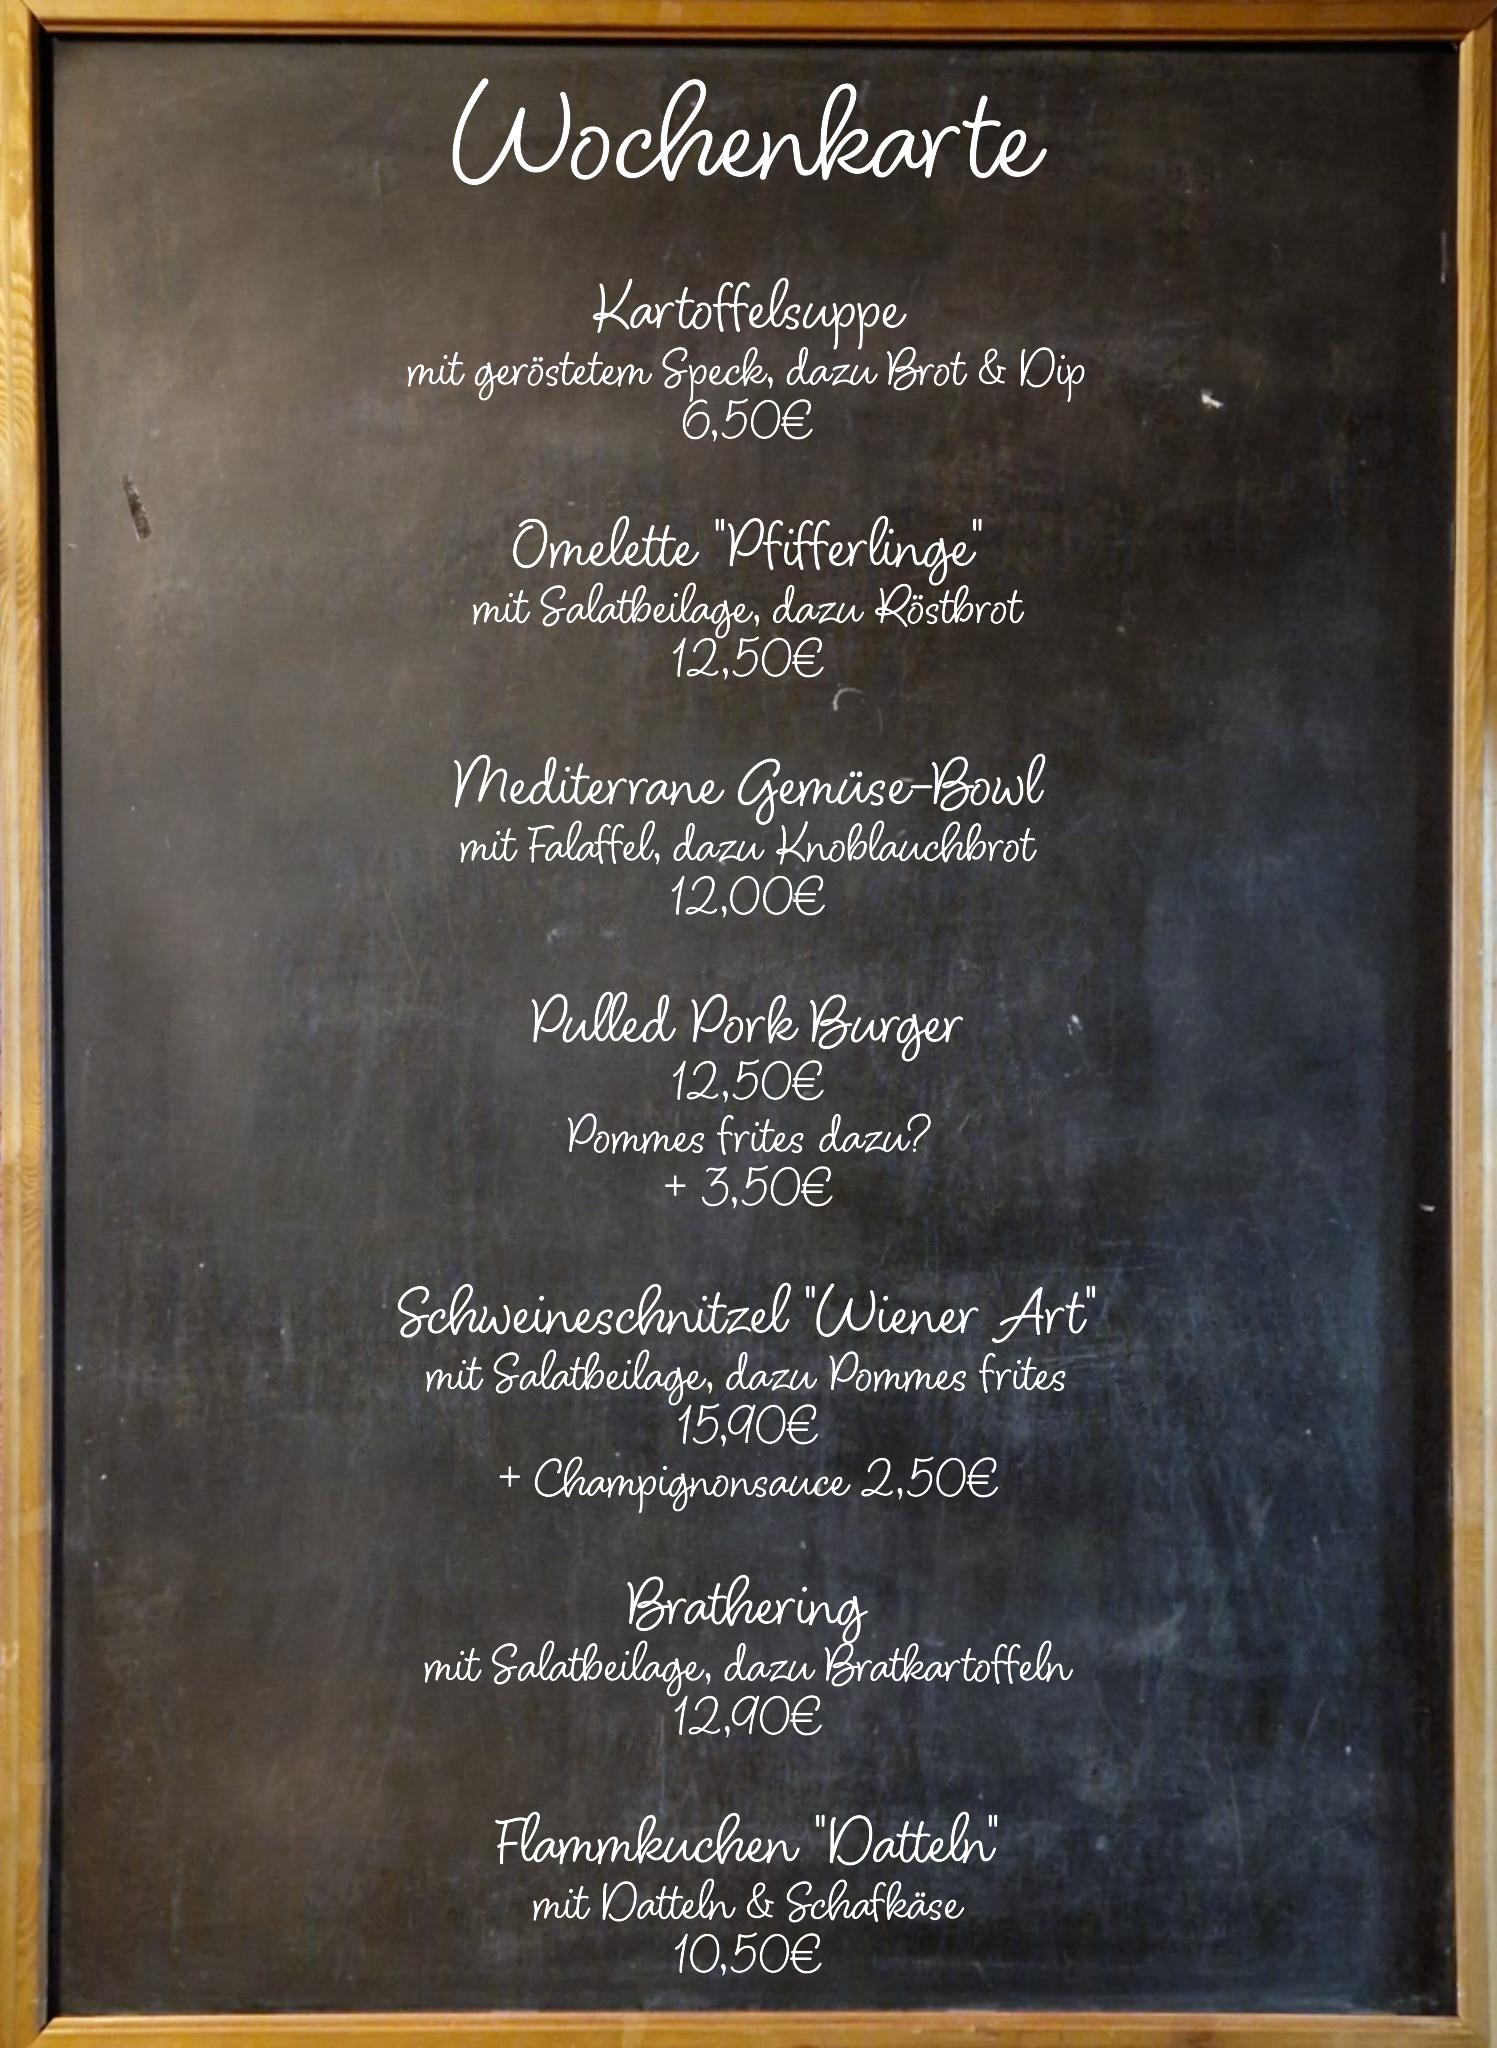 Wochenkarte
Kartoffelsuppe
mit geröstetem Speck, dazu Brot & Dip
6,50€
Omelette "Pfifferlinge"
mit Salatbeilage, dazu Röstbrot
12,50€
Mediterrane Gemüse-Bowl
mit Falaffel, dazu Knoblauchbrot
12,00€
Pulled Pork Burger
12,50€
Pommes frites dazu?
+ 3,50€
Schweineschnitzel "Wiener Art"
mit Salatbeilage, dazu Pommes frites
15,90€
+ Champignonsauce 2,50€
Brathering
mit Salatbeilage, dazu Bratkartoffeln
12,90€
Flammkuchen "Datteln"
mit Datteln & Schafkäse
10,50€